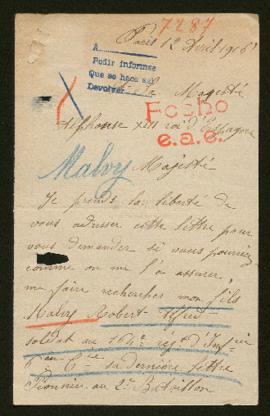 7287
Paris 12 Avril 1916
A
Pedir informes
Que se haga así
Devolver
Sa Majesté
Fecho
Alphonse XIII roi d'Espagne
e.a.e.
Malvy Majesté
Je prends la liberté de
vous adresser cette lettre pour
vous demander si vous pourriez
comme on me l'a assuré,
me faire rechercher mon fils
Malvy Robert
soldat au 164e régt d'Infrie
Cie sa dernière lettre
Pionnier au 2e Bataillon